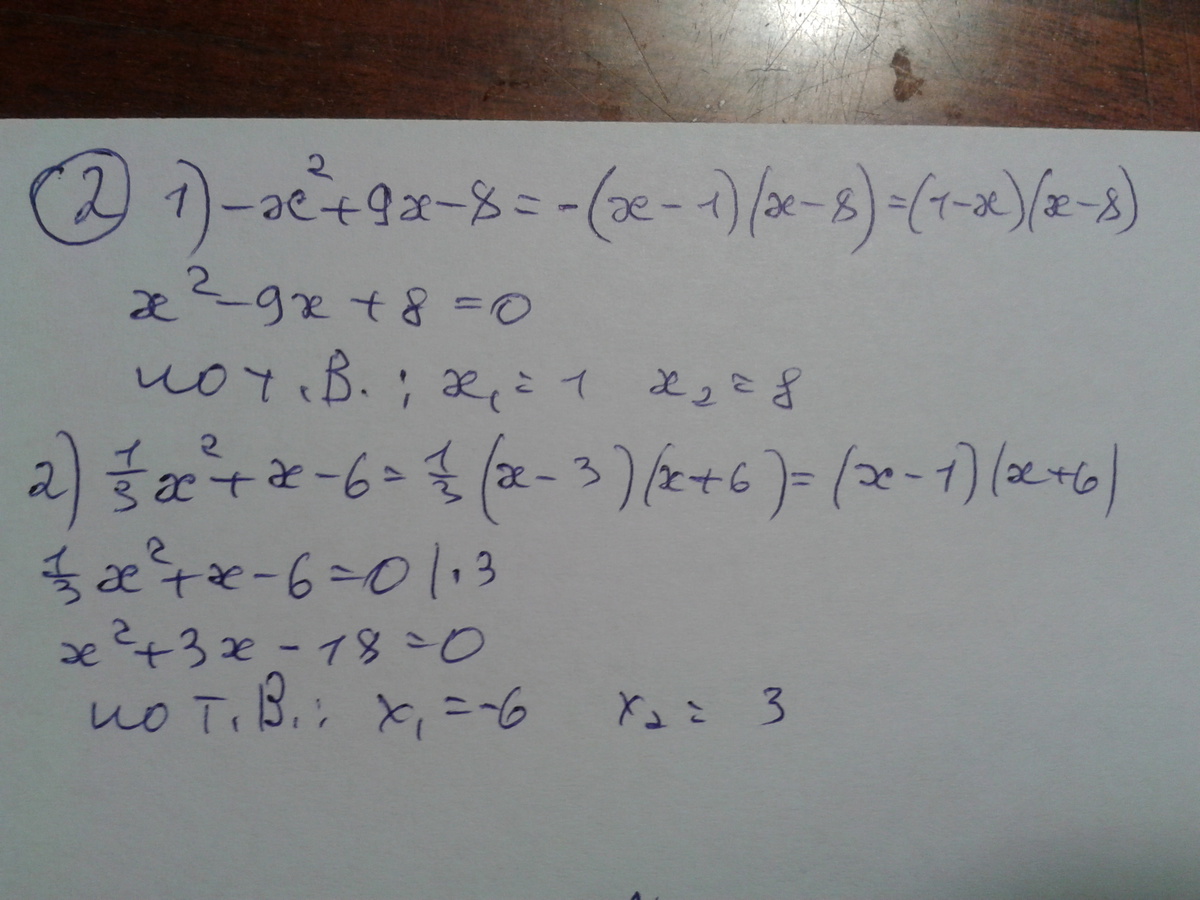 ② 1) -x²+9x-8=-(x-1)(x-8)=(1-x)(x-8)
x²-9x+8=0
по т.В.: x₁=1 x₂=8
2) 1/3 x²+x-6=1/3 (x-3)(x+6)=(x-1)(x+6)
1/3 x²+x-6=0 |·3
x²+3x-18=0
по т.В.: x₁=-6 x₂=3